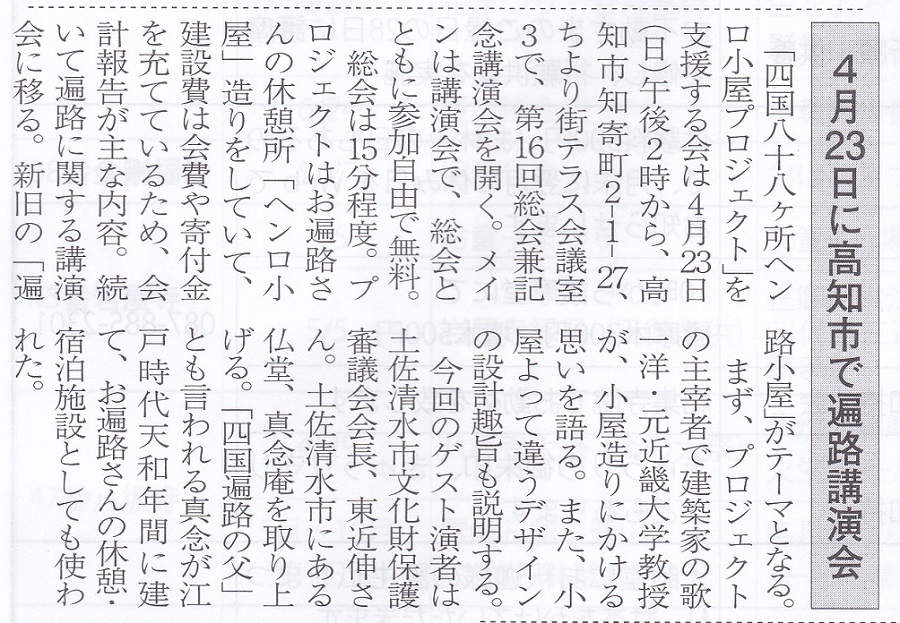 4月23日に高知市で遍路講演会
「四国八十八ヶ所ヘン
ロ小屋プロジェクト」を
支援する会は4月23日
(日)午後2時から、高
知市知寄町2-1-27、
ちより街テラス会議室
3で、第16回総会兼記
念講演会を開く。メイ
ンは講演会で、総会と
ともに参加自由で無料。
総会は15分程度。プ
ロジェクトはお遍路さ
んの休憩所「ヘンロ小
屋」造りをしていて、
建設費は会費や寄付金
を充てているため、会
計報告が主な内容。続
いて遍路に関する講演
会に移る。新旧の「遍
路小屋」がテーマとなる。
まず、プロジェクト
の主宰者で建築家の歌
一洋・元近畿大学教授
が、小屋造りにかける
思いを語る。また、小
屋よって違うデザイン
の設計趣旨も説明する。
今回のゲスト演者は
土佐清水市文化財保護
審議会会長、東近伸さ
ん。土佐清水市にある
仏堂、真念庵を取り上
げる。「四国遍路の父」
とも言われる真念が江
戸時代天和年間に建
て、お遍路さんの休憩・
宿泊施設としても使わ
れた。